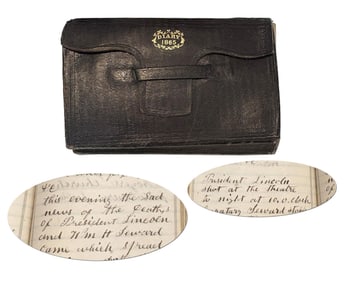 DIARY
1865
this evening the Sad
news of the Death
of President Lincoln
and Wm H Seward
came which Spread
President Lincoln
shot at the theatre
to night at 10.0.Clock
Seward